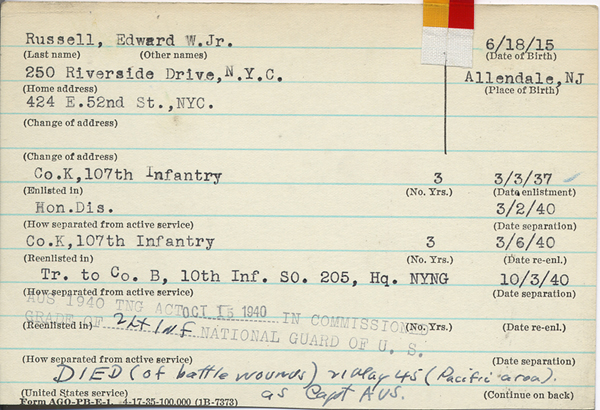 Russell, Edward W.Jr. 6/18/15
(Last name) (Other names) (Date of Birth)
250 Riverside Drive,N.Y.C. Allendale,NJ
(Home address) (Place of Birth)
424 E.52nd St.,NYC.
(Change of address)
(Change of address)
Co.K,107th Infantry 3 3/3/37
(Enlisted in) (No. Yrs.) (Date enlistment)
Hon.Dis. 3/2/40
(How separated from active service) (Date separation)
Co.K,107th Infantry 3 3/6/40
(Reenlisted in) (No. Yrs.) (Date re-enl.)
Tr. to Co. B, 10th Inf. SO. 205, Hq. NYNG 10/3/40
(How separated from active service) (Date separation)
AUS 1940 TNG ACT OCT 15 1940 IN COMMISSIONED
GRADE OF 2Lt INF NATIONAL GUARD OF U. S.
(Reenlisted in) (No. Yrs.) (Date re-enl.)
(How separated from active service) (Date separation)
DIED (of battle wounds) 21 May 45 (Pacific area).
as Capt AUS.
(United States service) (Continue on back)
Form AGO-PB-E-1. 4-17-35-100,000 (1B-7373)